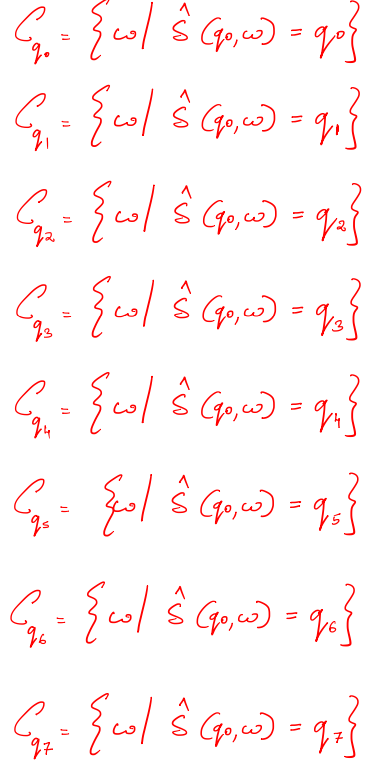 C_{q_0} = {ω / δ̂ (q_0, ω) = q_0}
C_{q_1} = {ω / δ̂ (q_0, ω) = q_1}
C_{q_2} = {ω / δ̂ (q_0, ω) = q_2}
C_{q_3} = {ω / δ̂ (q_0, ω) = q_3}
C_{q_4} = {ω / δ̂ (q_0, ω) = q_4}
C_{q_5} = {ω / δ̂ (q_0, ω) = q_5}
C_{q_6} = {ω / δ̂ (q_0, ω) = q_6}
C_{q_7} = {ω / δ̂ (q_0, ω) = q_7}